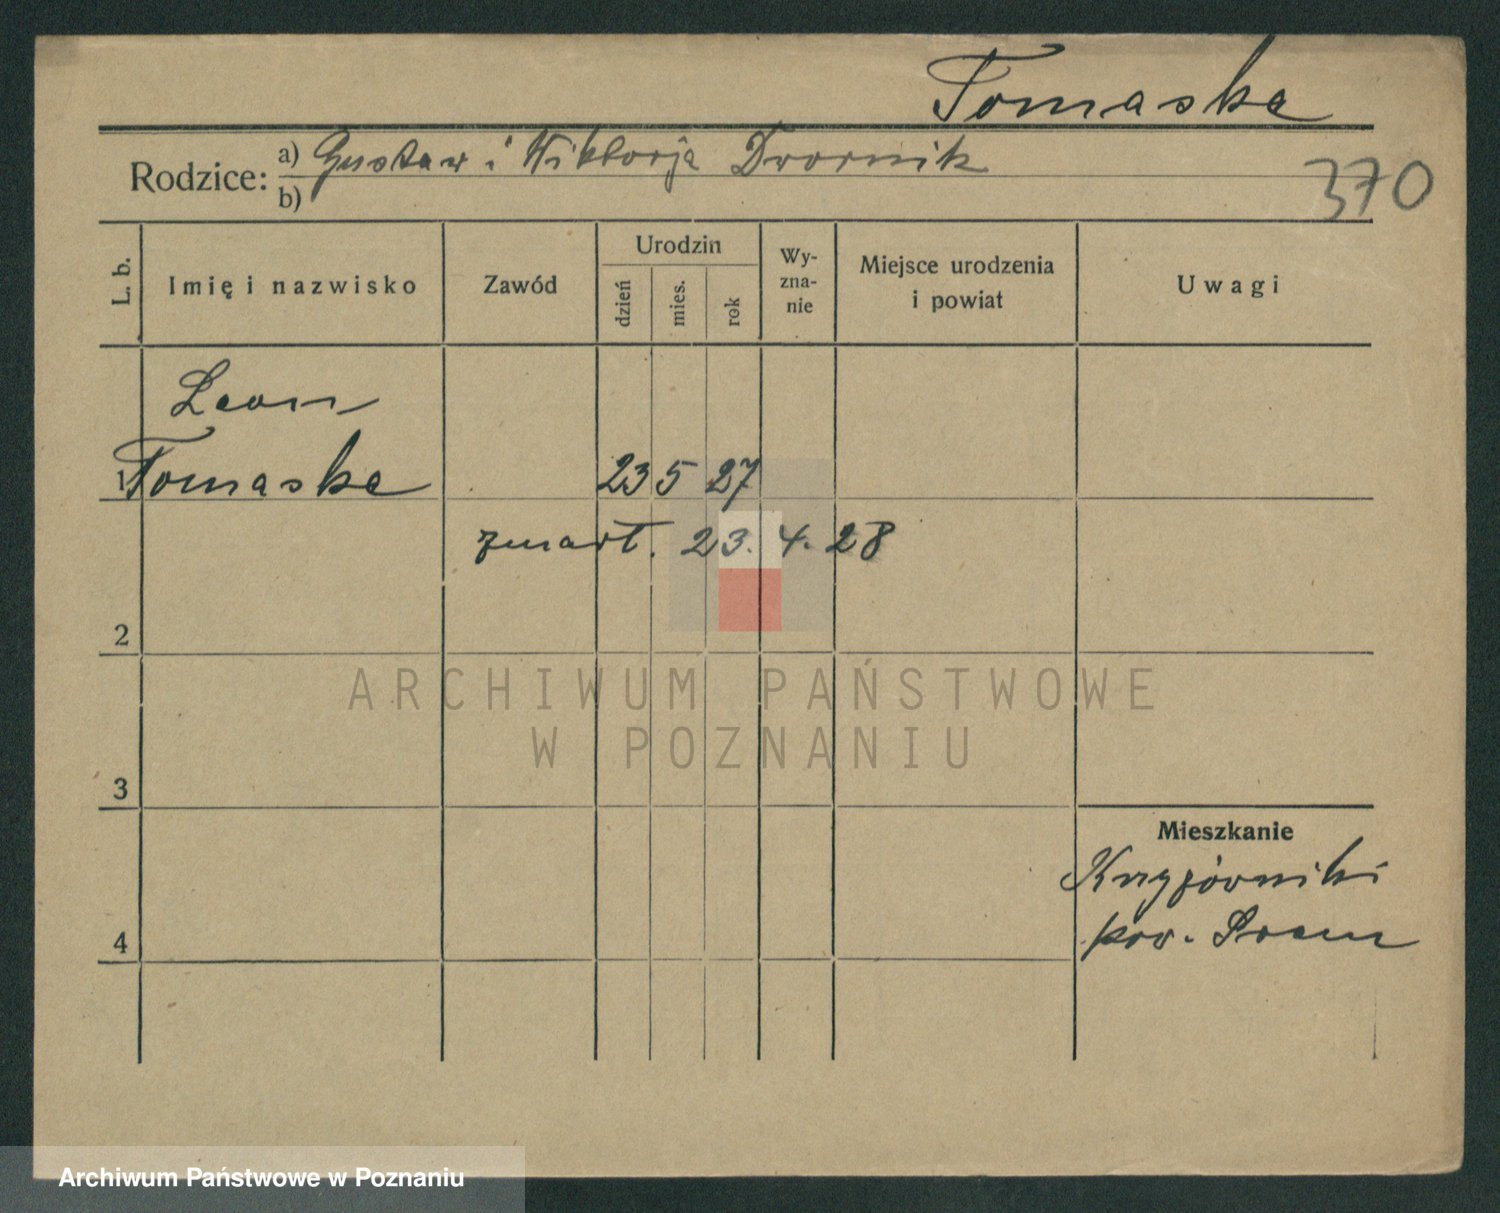 Tomaska
Rodzice: a) Gustaw i Wiktorja Dwornik
b)
370
L. b.
Imię i nazwisko
Zawód
Urodzin
dzień
mies.
rok
Wy-
zna-
nie
Miejsce urodzenia
i powiat
Uwagi
Leon
1 Tomaska 23 5 27
zmart. 23. 4. 28
2
ARCHIWUM PAŃSTWOWE
W POZNANIU
3
Mieszkanie
Krzyżowniki
4 pow. Śrem
Archiwum Państwowe w Poznaniu